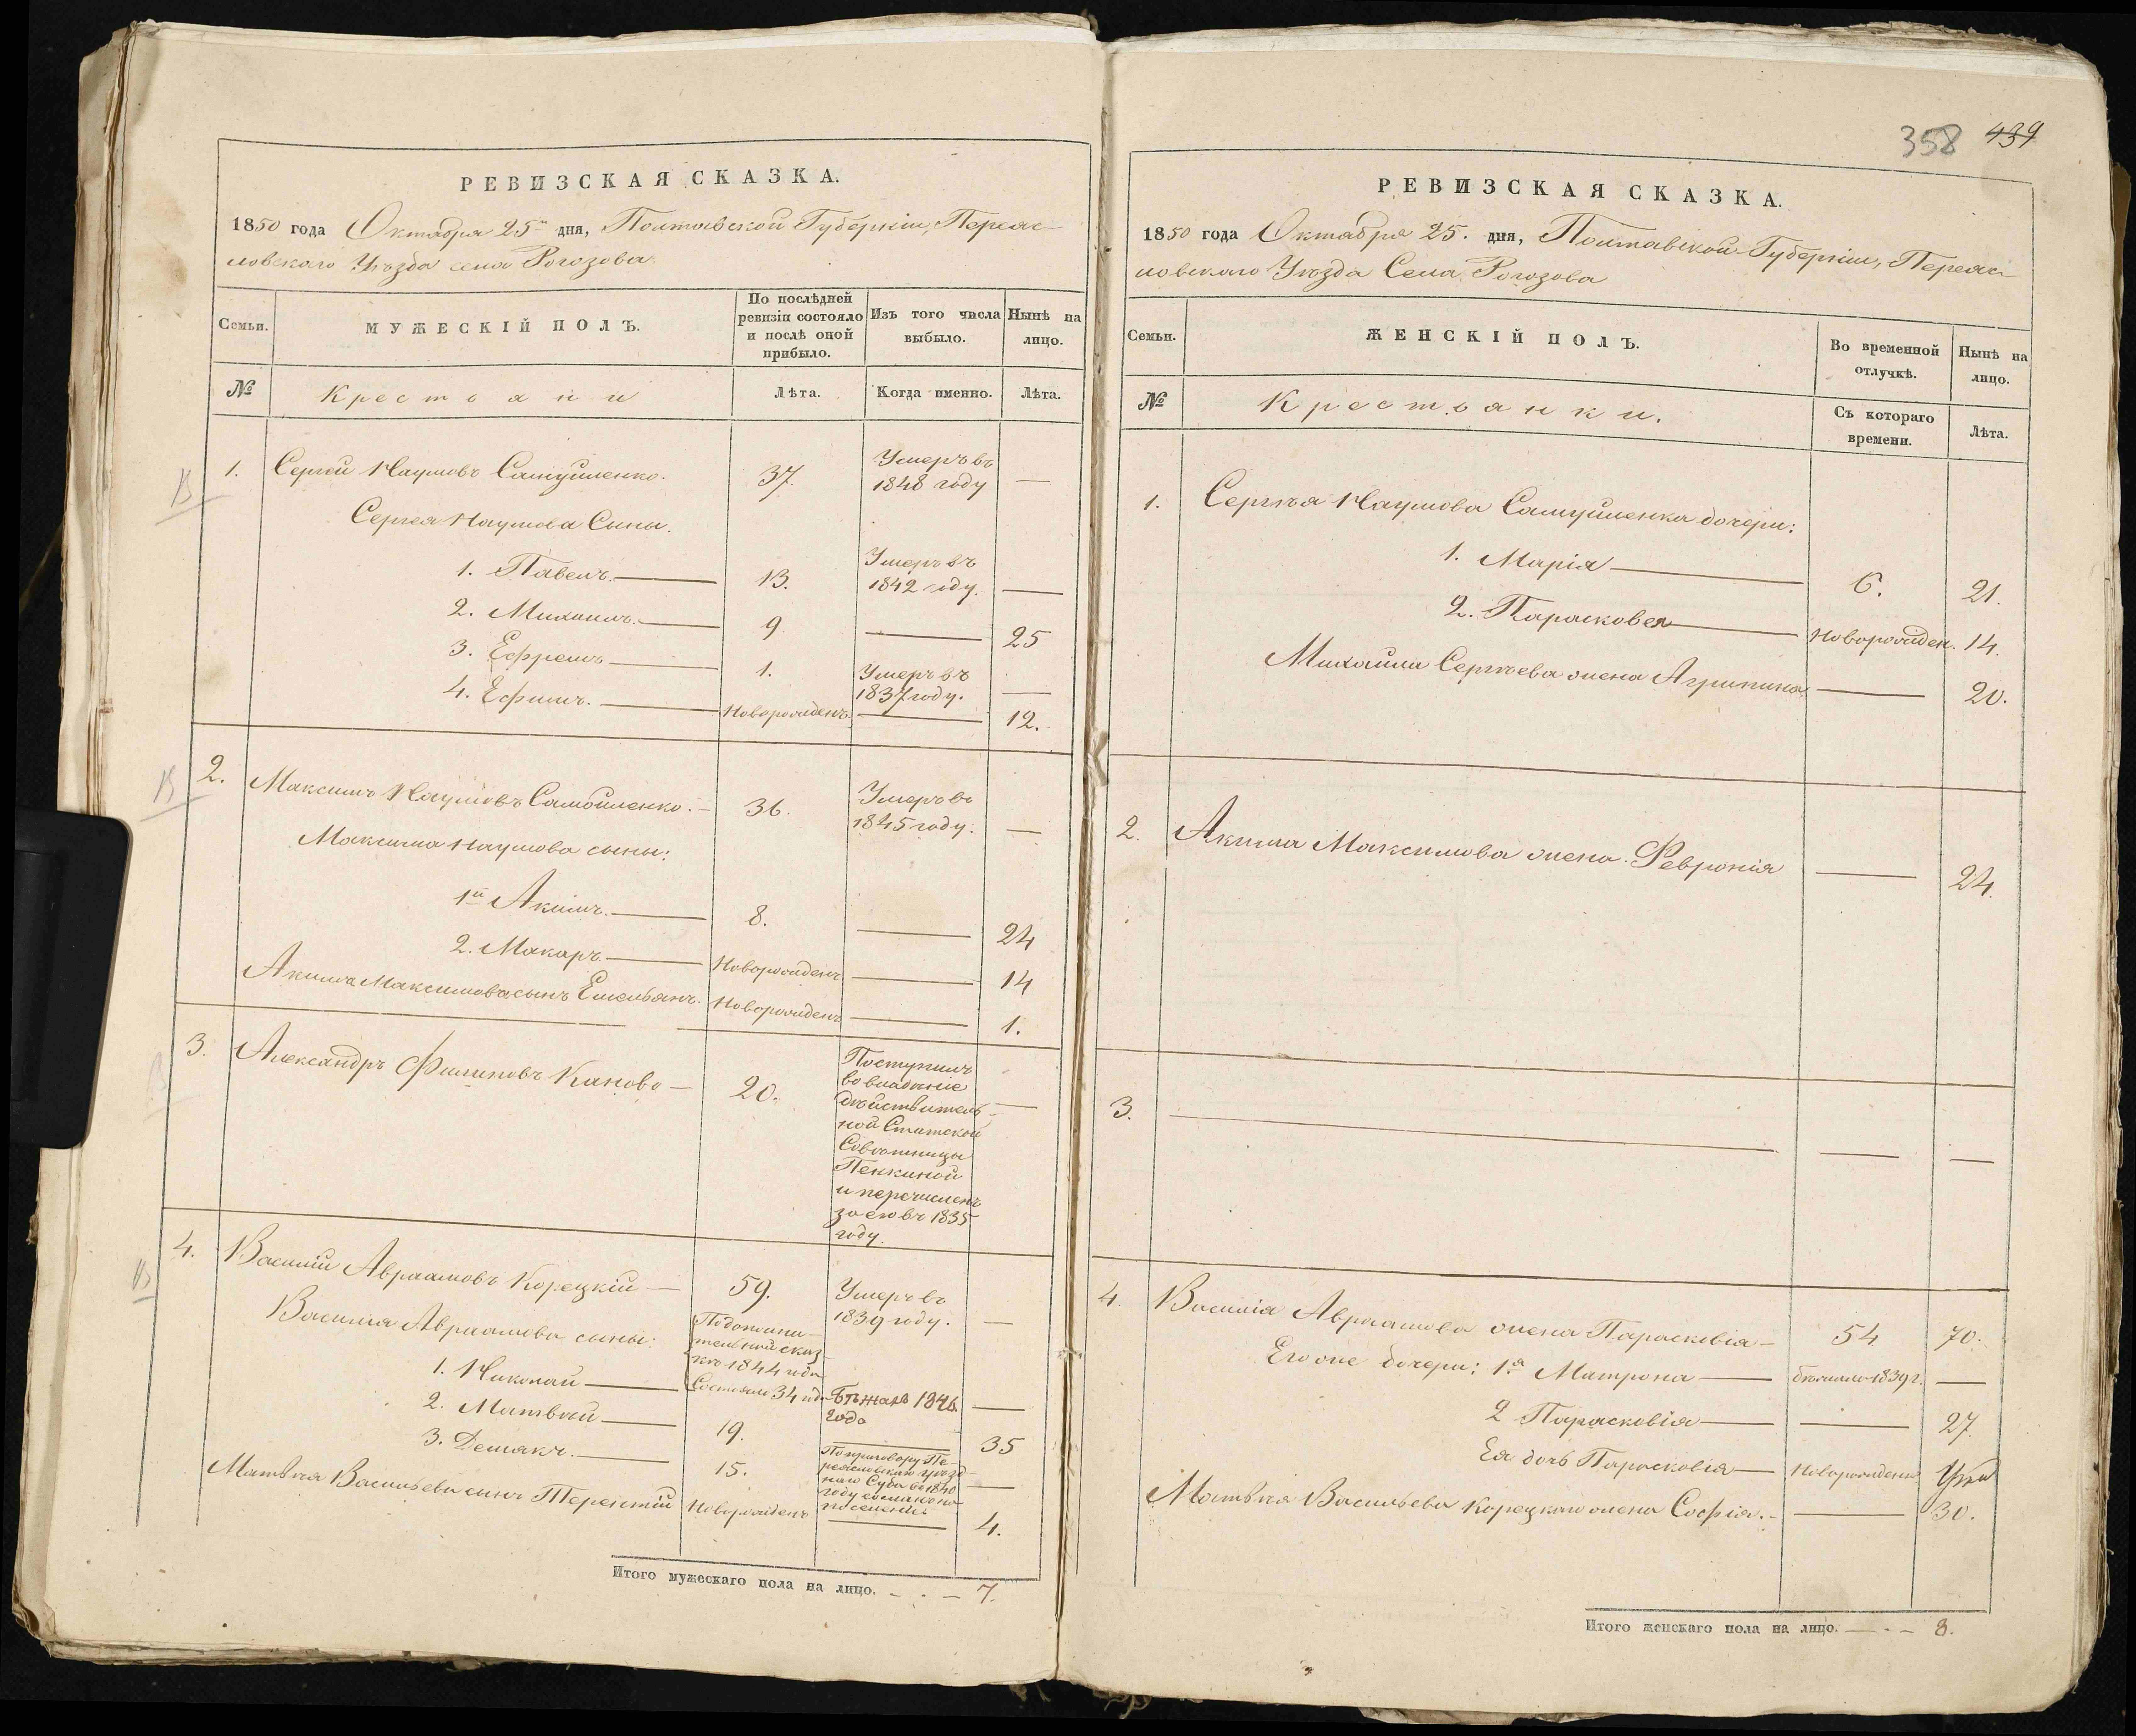 РЕВИЗСКАЯ СКАЗКА.
1850 года Октября 25 дня, Полтавской Губерніи, Переяс-
ловскаго Уѣзда села Рогозова.
Семьи.
МУЖЕСКІЙ ПОЛЪ.
По послѣдней
ревизіи состояло
и послѣ оной
прибыло.
Изъ того числа
выбыло.
Нынѣ на
лицо.
№
Крестьяни
Лѣта.
Когда именно.
Лѣта.
1. Сергій Наумовъ Самуйленко. 37. Умеръ въ
1848 году —
Сергея Наумова Сыны.
1. Павелъ. — 13. Умеръ въ
1842 году. —
2. Михаилъ. — 9 — 25
3. Ефремъ — 1. Умеръ въ
1837 году. —
4. Ефимъ. — Новорожденъ — 12.
2. Максимъ Наумовъ Самойленко. — 36. Умеръ въ
1845 году. —
Максима Наумова сыны:
1й Акимъ. — 8. — 24
2. Макаръ. — Новорожденъ — 14
Акима Максимова сынъ Емельянъ. Новорожденъ — 1.
3. Александръ Филиповъ — 20. Поступилъ
во владѣніе
дѣйствитель-
ной Статской
Совѣтницы
Пенкиной
и перечисленъ
за ею въ 1835
году.
4. Василій Авраамовъ Корецкій — 59. Умеръ въ
1839 году. —
Василія Авраамова сыны:
По дополни-
тельной сказ-
кѣ 1844 года
Состоялъ 34 
1. Николай — Бѣжалъ 1846
года —
2. Матвѣй — 19. — 35
3. Демянъ. — 15. По приговору Пе-
реясловскаго уѣзд-
наго Суда въ 1840
году сосланъ на
поселеніе —
Матвѣя Васильева сынъ Терентій Новорожденъ — 4.
Итого мужескаго пола на лицо. — 7.
358 439
РЕВИЗСКАЯ СКАЗКА.
1850 года Октября 25. дня, Полтавской Губерніи, Переяс-
ловскаго Уѣзда Села Рогозова
Семьи.
ЖЕНСКІЙ ПОЛЪ.
Во временной
отлучкѣ.
Нынѣ на
лицо.
№
Крестьянки.
Съ котораго
времени.
Лѣта.
1. Сергѣя Наумова Самуйленка дочери:
1. Марія — 6. 21.
2. Парасковея — Новорожден. 14.
Михайла Сергѣева жена Агрипина — 20.
2. Акима Максимова жена Февронія — 24.
3. — — —
4. Василія Авраамова жена Парасковія — 54 70.
Его же дочери: 1я Матрона — бѣжала 1839 г. —
2 Парасковія — — 27.
Ея дочь Парасковія — Новорожденна
Матвѣя Васильева Корецкаго жена Софія. — 30.
Итого женскаго пола на лицо. — 8.